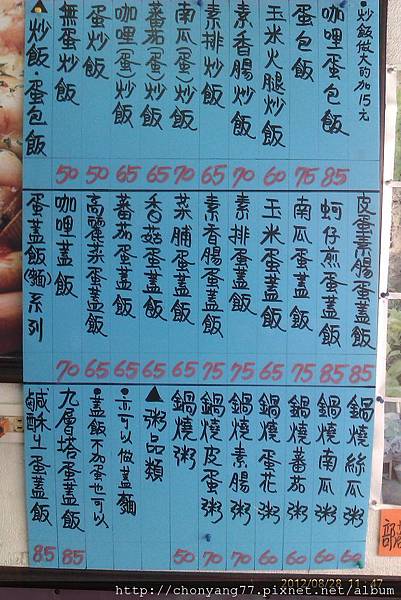 ▲炒飯·蛋包飯
無蛋炒飯 50
蛋炒飯 50
咖哩(蛋)炒飯 65
蕃茄(蛋)炒飯 65
南瓜(蛋)炒飯 70
素排炒飯 65
素香腸炒飯 70
玉米火腿炒飯 60
蛋包飯 75
咖哩蛋包飯 85
•炒飯做大的加15元
蛋蓋飯(麵)系列
咖哩蓋飯 70
高麗菜蛋蓋飯 65
蕃茄蛋蓋飯 65
香菇蛋蓋飯 65
菜脯蛋蓋飯 65
素香腸蛋蓋飯 75
素排蛋蓋飯 75
玉米蛋蓋飯 65
南瓜蛋蓋飯 75
蚵仔煎蛋蓋飯 85
皮蛋素腸蛋蓋飯 85
鹹酥ㄐ蛋蓋飯 85
九層塔蛋蓋飯 85
•蓋飯不加蛋也可以
•亦可以做蓋麵
▲粥品類
鍋燒粥 50
鍋燒皮蛋粥 70
鍋燒素腸粥 70
鍋燒蛋花粥 60
鍋燒蕃茄粥 60
鍋燒南瓜粥 60
鍋燒絲瓜粥 60
2012/08/28 11:47
http://chonyang77.pixnet.net/album